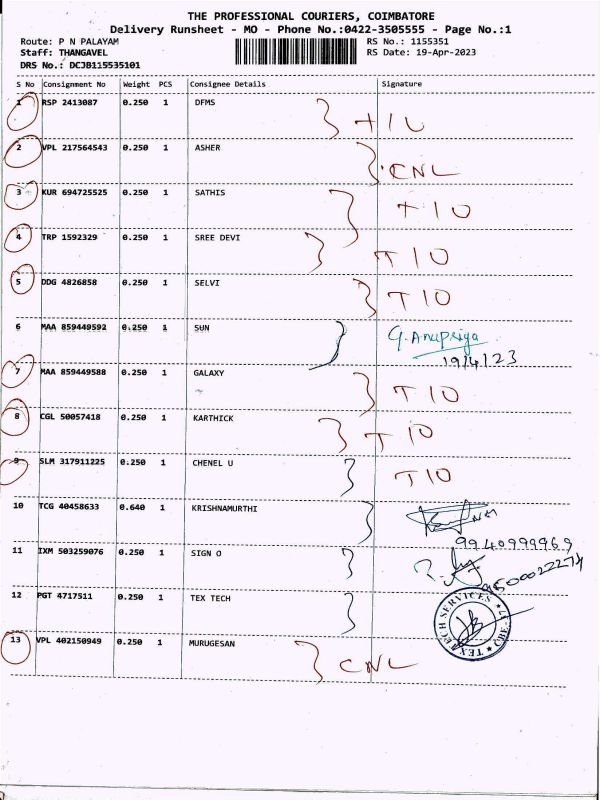 THE PROFESSIONAL COURIERS, COIMBATORE
Delivery Runsheet - MO - Phone No.:0422-3505555 - Page No.:1
Route: P N PALAYAM RS No.: 1155351
Staff: THANGAVEL RS Date: 19-Apr-2023
DRS No.: DCJB115535101
S No Consignment No Weight PCS Consignee Details Signature
1 RSP 2413087 0.250 1 DFMS
2 VPL 217564543 0.250 1 ASHER CNL
3 KUR 694725525 0.250 1 SATHIS T10
4 TRP 1592329 0.250 1 SREE DEVI T10
5 DDG 4826858 0.250 1 SELVI T10
6 MAA 859449592 0.250 1 SUN G. Anupriya
19/4/23
7 MAA 859449588 0.250 1 GALAXY T10
8 CGL 50057418 0.250 1 KARTHICK T10
9 SLM 317911225 0.250 1 CHENEL U T10
10 TCG 40458633 0.640 1 KRISHNAMURTHI
9940999969
11 IXM 503259076 0.250 1 SIGN O
12 PGT 4717511 0.250 1 TEX TECH
TEX TECH SERVICES
13 VPL 402150949 0.250 1 MURUGESAN CNL